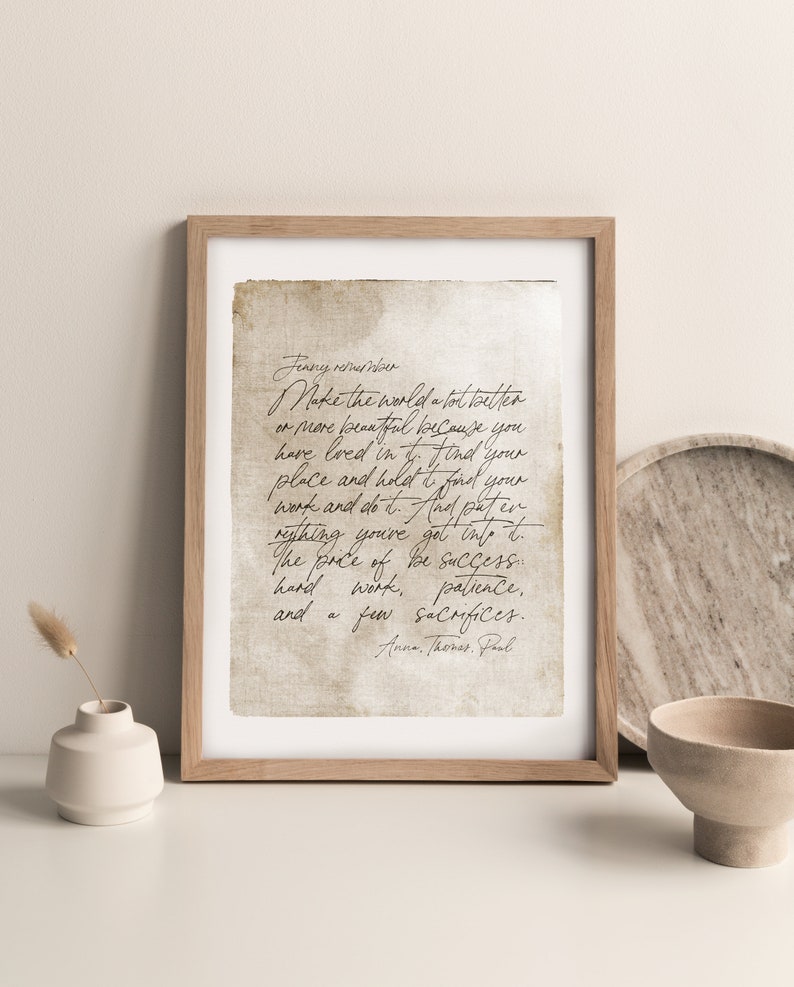 Jenny remember
Make the world a bit better
or more beautiful because you
have lived in it. Find your
place and hold it find your
work and do it. And put ev
rything you've got into it.
The price of be success::
hard work, patience,
and a few sacrifices.
Anna, Thomas, Paul